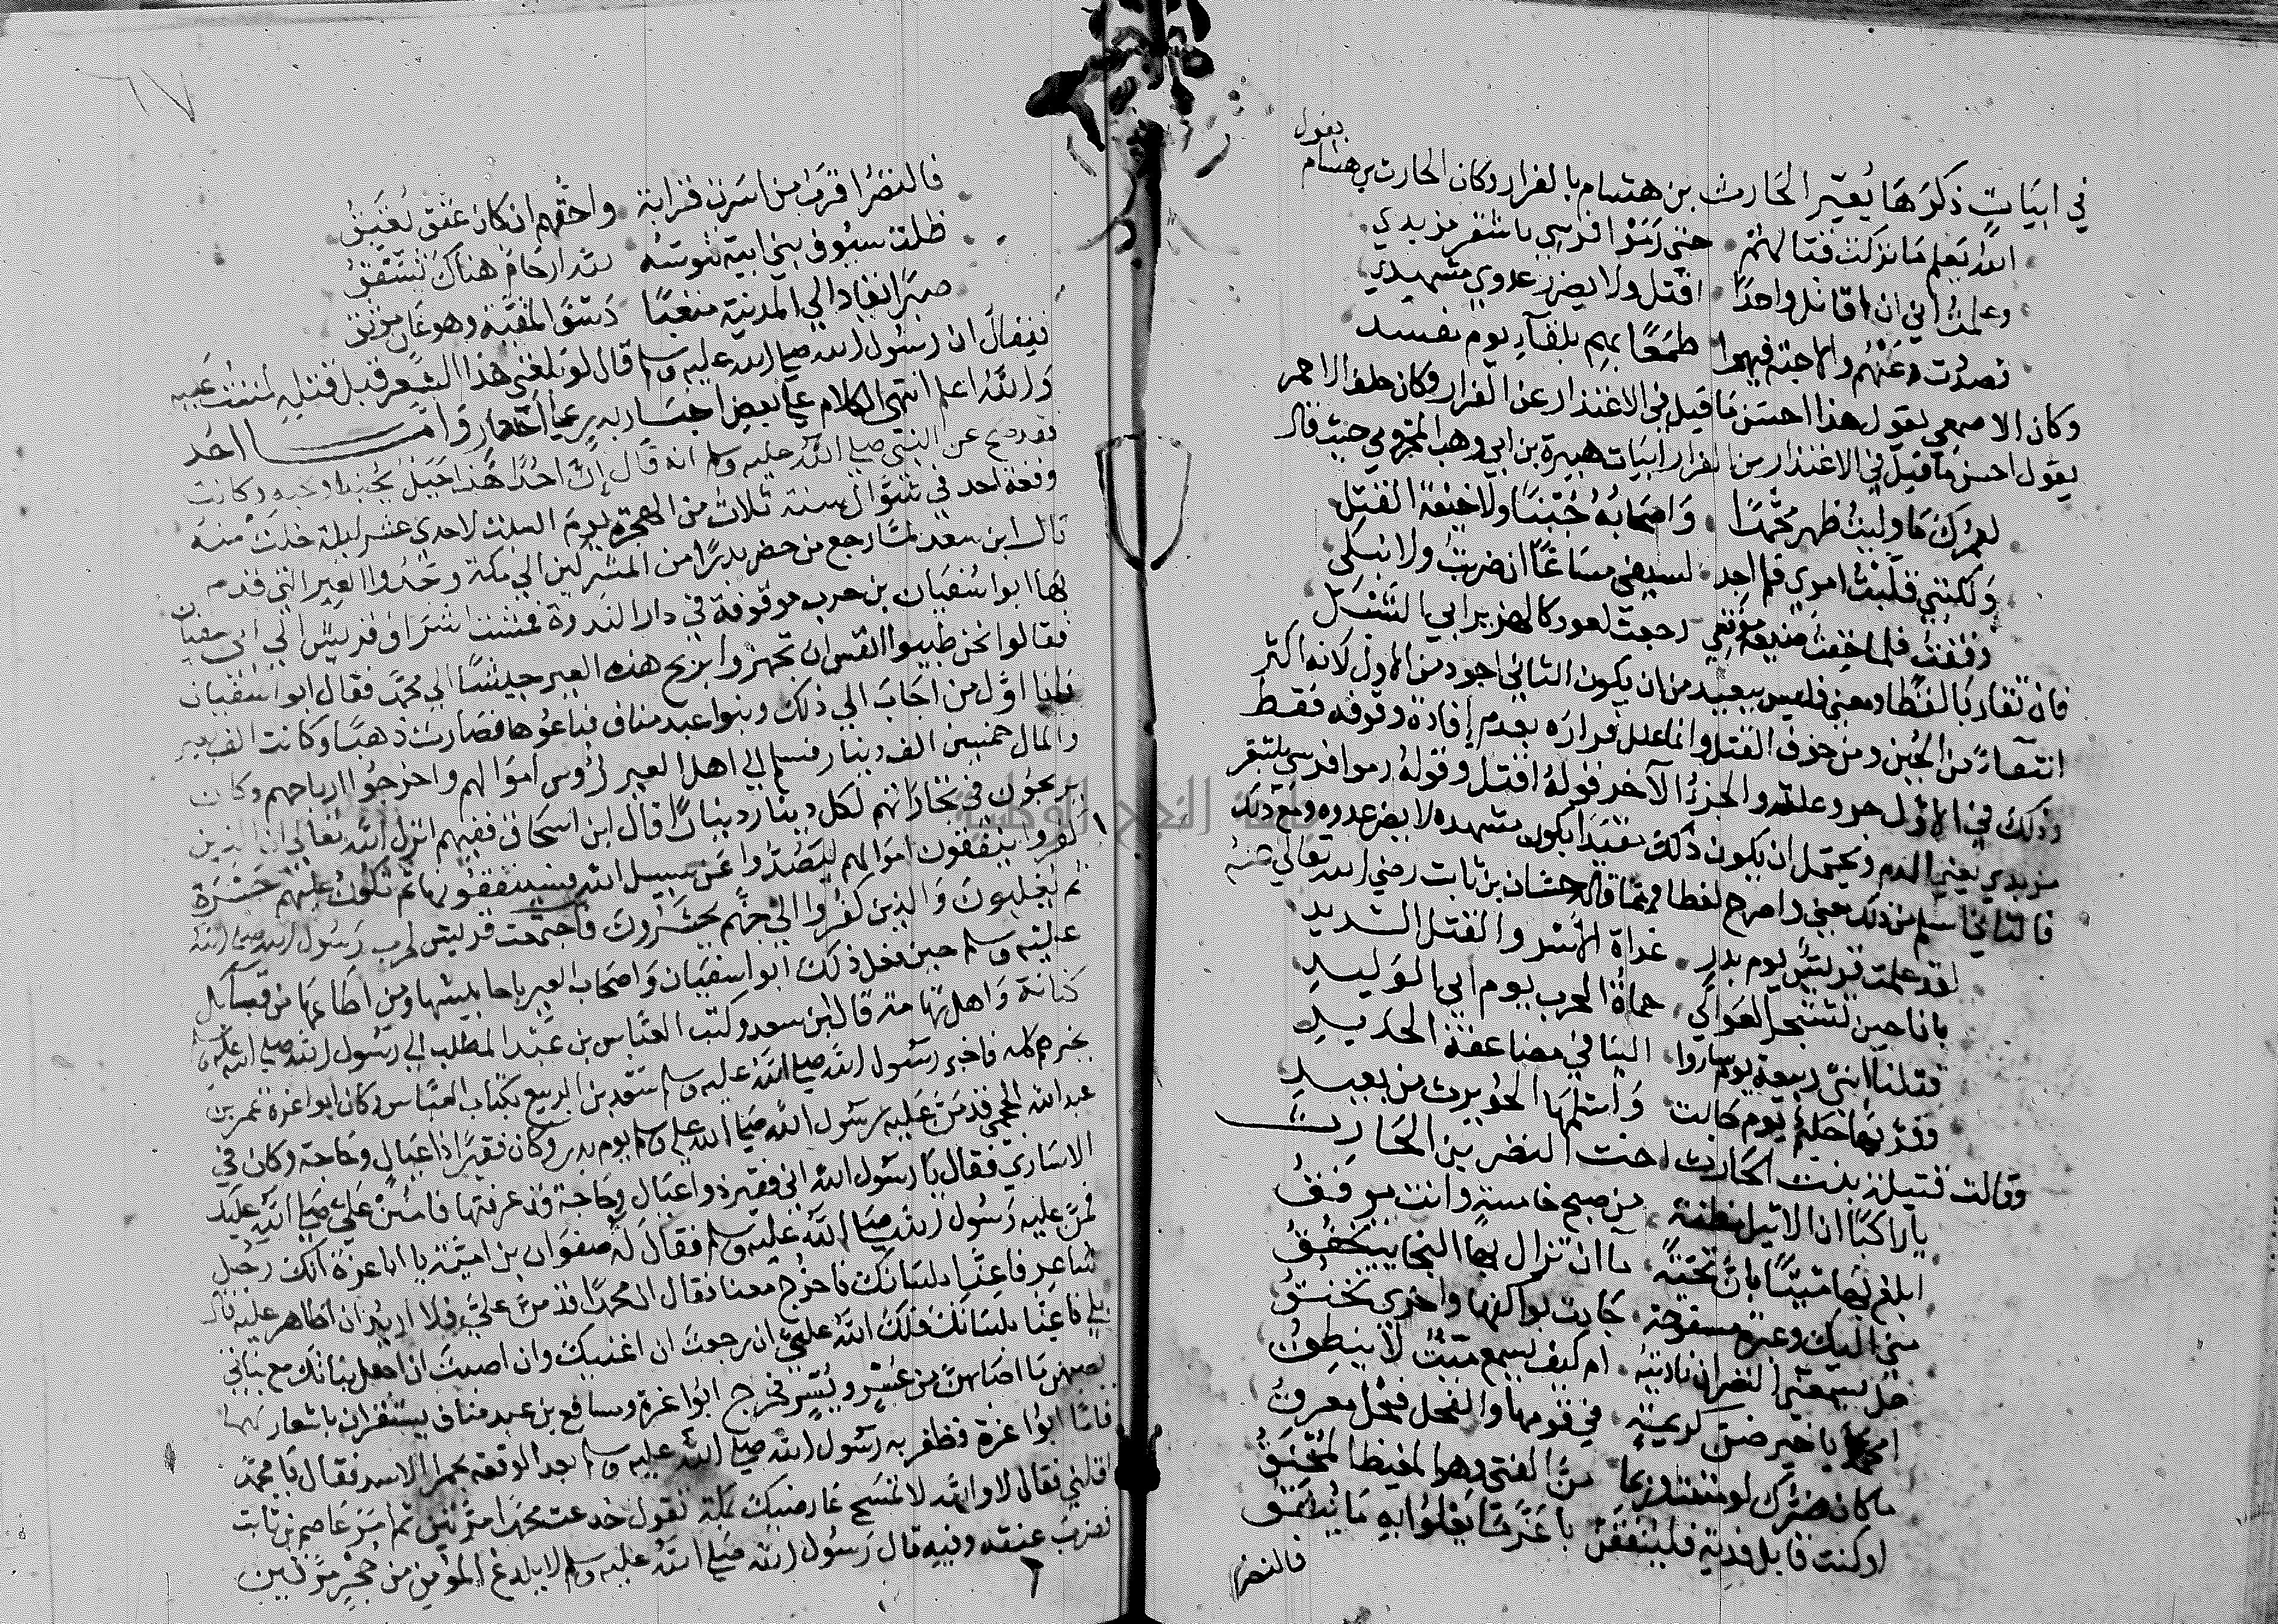 في ابيات ذكرها يُعيّر الحارث بن هشام بالفرار وكان الحارث بن هشام يقول
الله يعلم ما تركت قتالهم حتى رموا فرسي باشقر مزبدي
وعلمت اني ان اقاتل واحدا اقتل ولا يضرر عدوي مشهدي
فصددت عنهم والاحبة فيهم طمعا لهم بلقاء يوم مفسد
وكان الاصمعي يقول هذا احسن ما قيل في الاعتذار عن الفرار وكان خلف الاحمر
يقول احسن ما قيل في الاعتذار من الفرار ابيات هبيرة بن ابي وهب المخزومي حيث قال
لعمرك ما وليت ظهري محمدا واصحابه جبنا ولا خيفة القتل
ولكنني قلبت امري فلم اجد لسيفي مساغا ان ضربت ولا نبلى
وقفت فلما خفت ضيعة موقفي رجعت لعود كالهزبر ابي الشبل
فان تقاربا لفظا ومعنى فليس ببعيد من ان يكون الثاني اجود من الاول لانه اكثر
انتفاء من الجبن ومن خوف القتل وانما علل فراره بعدم افادة وقوفه فقط
وذلك في الاول جزء علته والجزء الآخر قوله اقتل وقوله رموا فرسي باشقر
مزبدي يعني الدم ويحتمل ان يكون ذلك مقيدا بكون مشهده لا يضر عدوه ومع ذلك
فالثاني اسلم من ذلك معنى واصرح لفظا ومما قاله حسان بن ثابت رضي الله تعالى عنه
لقد علمت قريش يوم بدر غداة الاسر والقتل الشديد
بانا حين تشتجر العوالي حماة الحرب يوم ابي الوليد
قتلنا ابني ربيعة يوم ساروا الينا في مضاعفة الحديد
وقالت قتيلة بنت الحارث اخت النضر بن الحارث
يا راكبا ان الاثيل مظنة من صبح خامسة وانت موفق
ابلغ بها ميتا بان تحية ما ان تزال بها النجايب تخفق
مني اليك وعبرة مسفوحة جادت بواكفها واخرى تخنق
هل يسمعني النضر ان ناديته ام كيف يسمع ميت لا ينطق
امحمد يا خير ضنى كريمة في قومها والفحل فحل معرق
ما كان ضرك لو مننت وربما من الفتى وهو المغيظ المحنق
او كنت قابل فدية فلينفقن باعز ما يغلوا به ما ينفق
فالنضر
٦٧
فالنضر اقرب من اسرت قرابة واحقهم ان كان عتق يعتق
ظلت سيوف بني ابيه تنوشه لله ارحام هناك تشقق
صبرا يقاد الى المدينة متعبا رسف المقيد وهو عان موثق
فيقال ان رسول الله صلى الله عليه وسلم قال لو بلغني هذا الشعر قبل قتله لمننت عليه
والله اعلم انتهى الكلام على بعض اخبار بدر على اختصار واما احد
فقد صح عن النبي صلى الله عليه وسلم انه قال ان احدا هذا جبل يحبنا ونحبه وكانت
وقعة احد في شوال سنة ثلاث من الهجرة يوم السبت لاحدى عشر ليلة خلت منه
قال ابن سعد لما رجع من حضر بدرا من المشركين الى مكة وجدوا العير التي قدم
بها ابو سفيان بن حرب موقوفة في دار الندوة فمشت اشراف قريش الى ابي سفيان
فقالوا نحن طيبوا انفس ان تجهزوا بربح هذه العير جيشا الى محمد فقال ابو سفيان
فانا اول من اجاب الى ذلك وبنوا عبد مناف فباعوها فصارت ذهبا وكانت الف بعير
والمال خمسين الف دينار فسلم الى اهل العير رؤس اموالهم واخرجوا ارباحهم وكان
يربحون في تجاراتهم لكل دينار دينارا قال ابن اسحاق ففيهم انزل الله تعالى ان الذين
كفروا ينفقون اموالهم ليصدوا عن سبيل الله فسينفقونها ثم تكون عليهم حسرة
ثم يغلبون والذين كفروا الى جهنم يحشرون فاجتمعت قريش لحرب رسول الله صلى الله
عليه وسلم حين فعل ذلك ابو سفيان واصحاب العير باحابيشها ومن اطاعها من قبايل
كنانة واهل تهامة قال ابن سعد وكتب العباس بن عبد المطلب الى رسول الله صلى الله عليه وسلم
بخبرهم كله فاخبر رسول الله صلى الله عليه وسلم سعد بن الربيع بكتاب العباس وكان ابو عزة عمر بن
عبد الله الجمحي قد من عليه رسول الله صلى الله عليه وسلم يوم بدر وكان فقيرا ذا عيال وحاجة وكان في
الاسارى فقال يا رسول الله اني فقير ذوا عيال وحاجة قد عرفتها فامنن علي صلى الله عليك
فمن عليه رسول الله صلى الله عليه وسلم فقال له صفوان بن امية يا ابا عزة انك رجل
شاعر فاعنا بلسانك فاخرج معنا فقال ان محمدا قد من علي فلا اريد ان اظاهر عليه قال
بلى فاعنا بلسانك فلك الله علي ان رجعت ان اغنيك وان اصبت ان اجعل بناتك مع بناتي
يصيبهن ما اصابهن من عسر ويسر فخرج ابوا عزة ومسافع بن عبد مناف يستنفران باشعارهما
فاما ابوا عزة فظفر به رسول الله صلى الله عليه وسلم بعد الوقعة بحمرا الاسد فقال يا محمد
اقلني فقال لا والله لا تمسح عارضيك بمكة تقول خدعت محمدا مرتين ثم امر عاصم بن ثابت
فضرب عنقه وفيه قال رسول الله صلى الله عليه وسلم لا يلدغ المؤمن من جحر مرتين